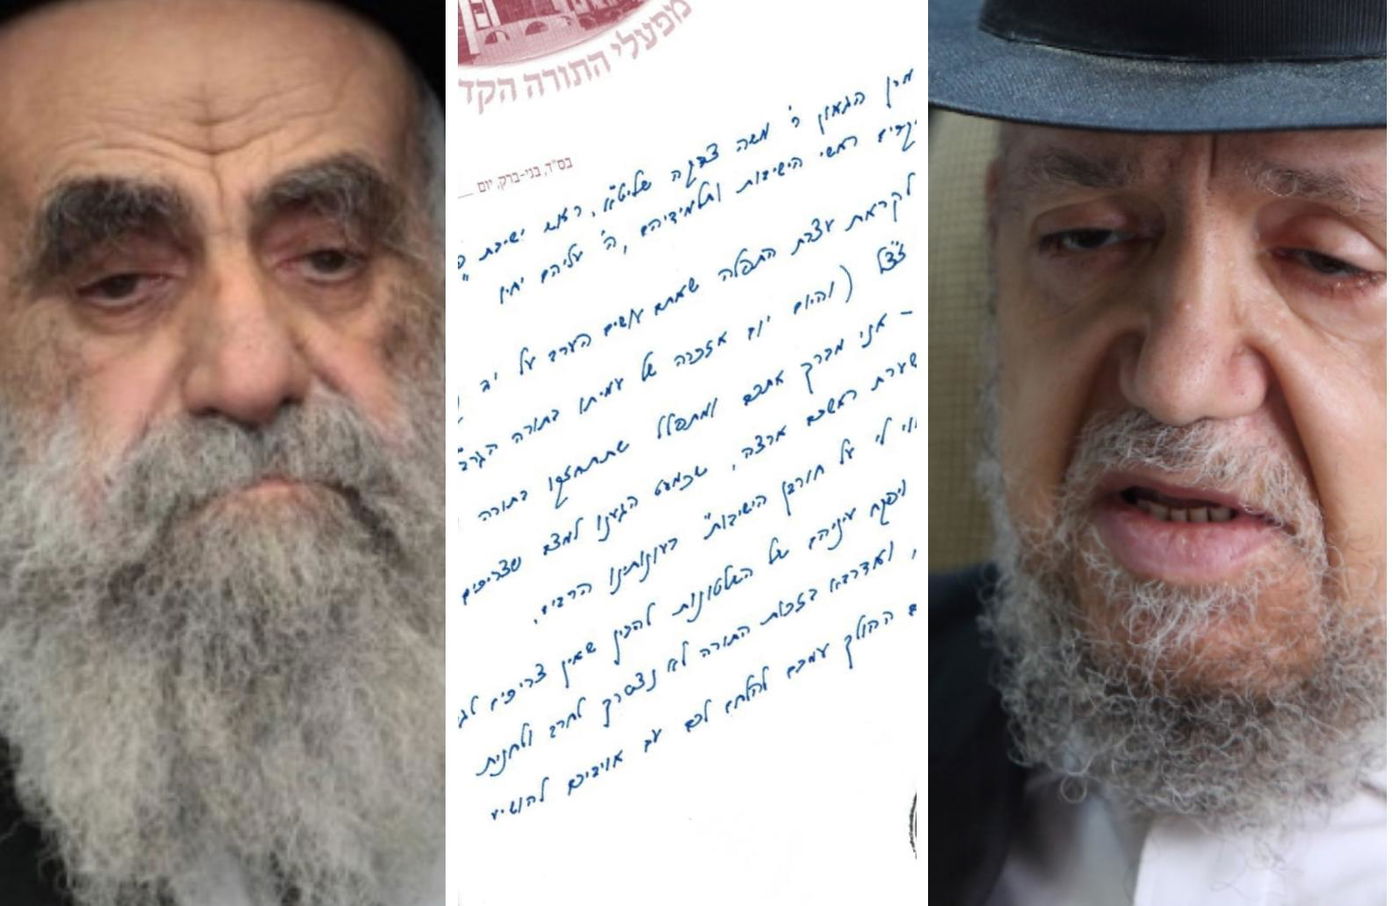 מפעלי התורה הקד
בס"ד, בני-ברק, יום
מרן הגאון ר' משה צדקה שליט"א, ראש ישיבת פ
יקרים ראשי הישיבות ותלמידיהם, ה' עליהם יחיו
לקראת עצרת התפלה שאתם עושים הערב על יב
זצ"ל (והיום יום אזכרה של עמיתו בתורה הגר"
- אני מברך אתכם ומתפלל שתתחזקו בתורה
שערת ראשכם ארצה, שכמעט הגענו למצב שצריכים
אוי לי על חורבן הישיבות" בעוונותינו הרבים.
ויפקח עיניהם של השלטונות להבין שאין צריכים לג
, ואדרבא בזכות התורה לא נצטרך לחרב ולחנית
ם ההולך עמכם להלחם לכם עם אויביכם להושיע